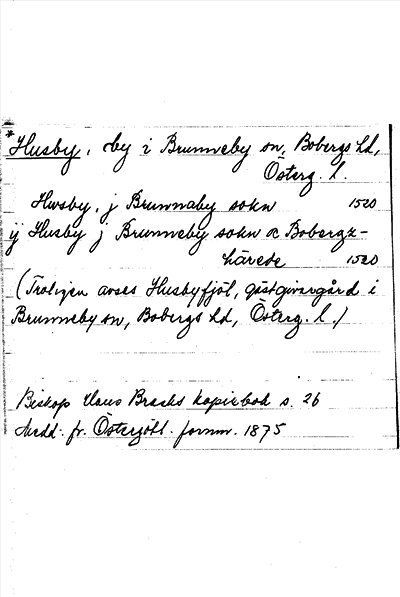 *
Husby, by i Brunneby sn, Bobergs hd,
Österg. l.
Hwsby, j Brunnaby sokn 1520
ij Husby j Brunneby sokn oc Bobergx-
härede 1520
(Troligen avses Husbyfjöl, gästgivargård i
Brunneby sn, Bobergs hd, Österg. l.)
Biskop Hans Brasks kopiebok s. 26
Medd. fr. Östergötl. fornm. 1875